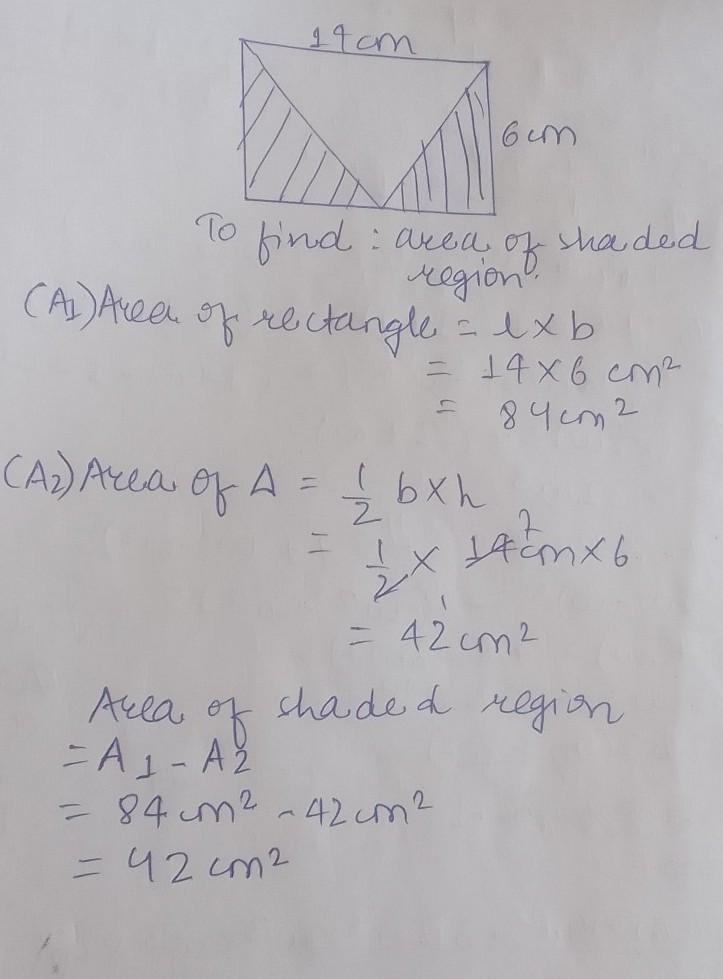 14cm
6cm
To find : area of shaded
region.
(A1) Area of rectangle = l x b
= 14 x 6 cm²
= 84cm²
(A2) Area of Δ = 1/2 b x h
= 1/2 x 14 7 cm x 6
1
= 42cm²
Area of shaded region
= A1 - A2
= 84cm² - 42cm²
= 42cm²